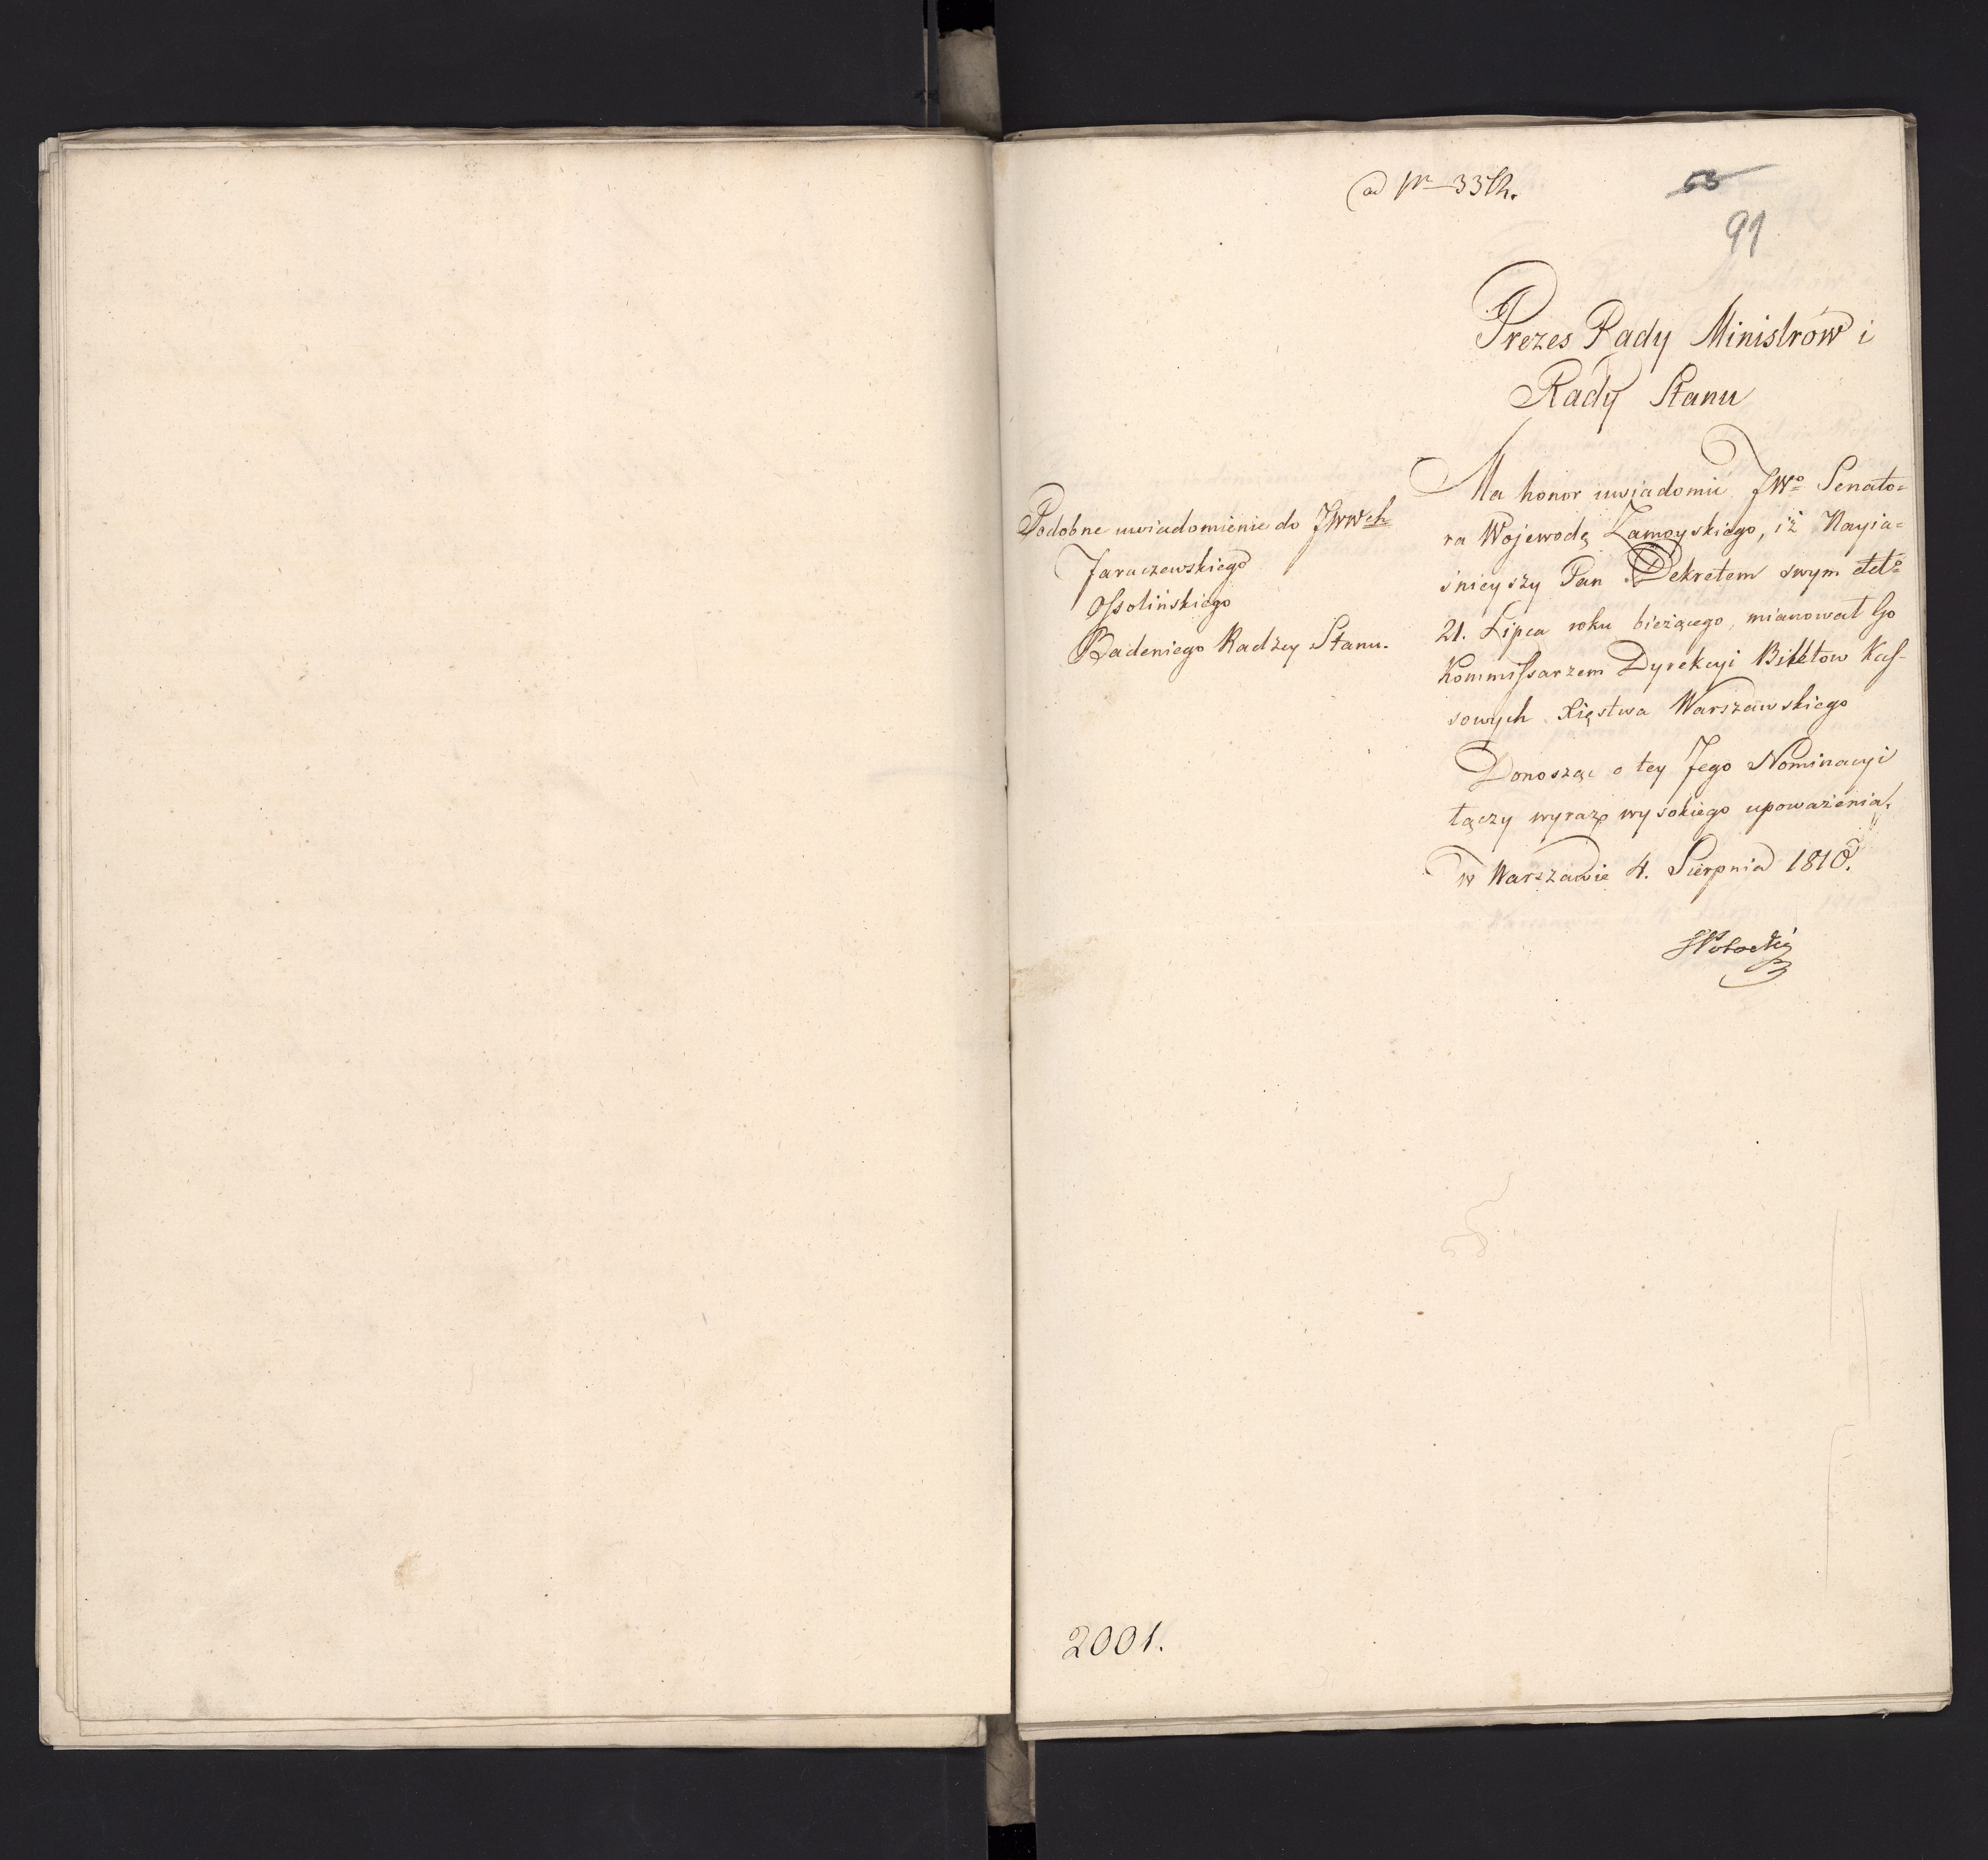 ad Nr 33
53
91
Prezes Rady Ministrów i
Rady Stanu
Ma honor uwiadomić JWo Senato=
ra Wojewodę Zamoyskiego, iż Nayia=
śnieyszy Pan Dekretem swym ddto
21. Lipca roku bieżącego, mianował Go
Kommissarzem Dyrekcyi Biletow Kas-
sowych Xięstwa Warszawskiego
Donosząc o tey Jego Nominacyi
łączy wyraz wysokiego upoważenia.
w Warszawie 4. Sierpnia 1810.
Potocki
Podobne uwiadomienie do JWWch
Jaraczewskiego
Ossolińskiego
Badeniego Radzcy Stanu.
2001.